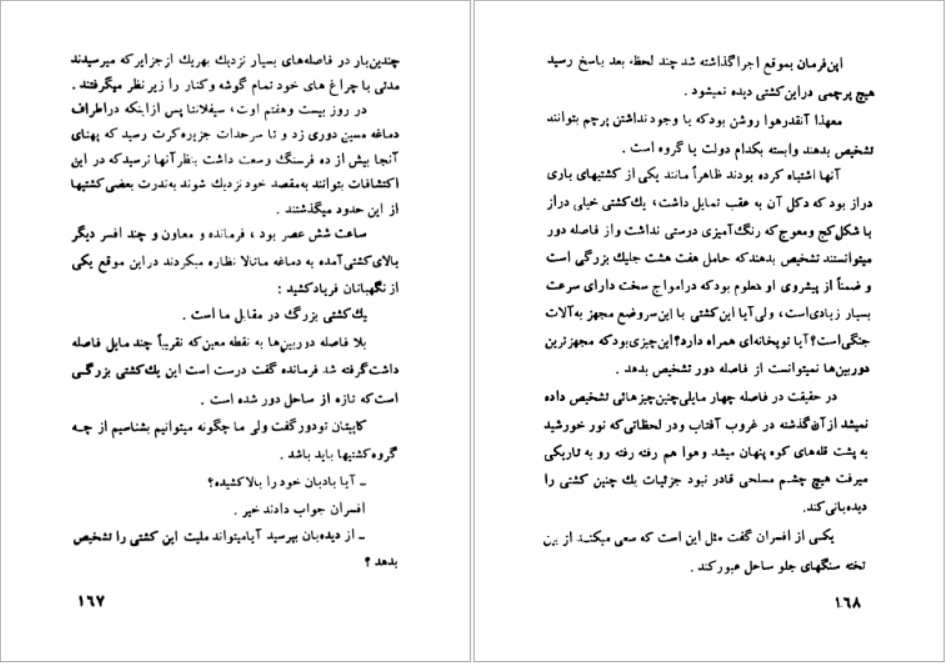 چندین‌بار در فاصله‌های بسیار نزدیك بهریك ازجزایرکه میرسیدند
مدتی با چراغ های خود تمام گوشه وکنار را زیر نظر میگرفتند .
در روز بیست وهفتم اوت، سیفلانتا پس ازاینکه دراطراف
دماغه مسین دوری زد و تا سرحدات جزیره‌کرت رسید که پهنای
آنجا بیش از ده فرسنگ وسعت داشت بنظر آنها نرسیدکه در این
اکتشافات بتوانند به‌مقصد خود نزدیك شوند به‌ندرت بعضی کشتیها
از این حدود میگذشتند .
ساعت شش عصر بود ، فرمانده و معاون و چند افسر دیگر
بالای کشتی آمده به دماغه ماتالا نظاره میکردند دراین موقع یکی
از نگهبانان فریادکشید :
یك‌کشتی بزرگ در مقابل ما است .
بلا فاصله دوربین‌ها به نقطه معین‌که تقریباً چند مایل فاصله
داشت گرفته شد فرمانده گفت درست است این یك‌کشتی بزرگی
است‌که تازه از ساحل دور شده است .
کاپیتان تودور گفت ولی ما چگونه میتوانیم بشناسیم از چه
گروه‌کشتیها باید باشد .
ـ آیا بادبان خود را بالاکشیده؟
افسران جواب دادند خیر .
ـ از دیده‌بان بپرسید آیامیتواند ملیت این کشتی را تشخیص
بدهد ؟
۱۶۷
این‌فرمان بموقع اجراگذاشته شد چند لحظه بعد پاسخ رسید
هیچ پرچمی دراین‌کشتی دیده نمیشود .
معهذا آنقدرهوا روشن بودکه با وجود نداشتن پرچم بتوانند
تشخیص بدهند وابسته بکدام دولت یا گروه است .
آنها اشتباه کرده بودند ظاهراً مانند یکی از کشتیهای باری
دراز بود که دکل آن به عقب تمایل داشت، یك‌کشتی خیلی دراز
با شکل کج ومعوج که رنگ‌آمیزی درستی نداشت واز فاصله دور
میتوانستند تشخیص بدهندکه حامل هفت هشت جلیك بزرگی است
و ضمناً از پیشروی او معلوم بودکه درامواج سخت دارای سرعت
بسیار زیادی‌است، ولی‌آیا این‌کشتی با این‌سروضع مجهز به‌آلات
جنگی‌است؟آیا توپخانه‌ای همراه دارد؟این‌چیزی‌بودکه مجهزترین
دوربین‌ها نمیتوانست از فاصله دور تشخیص بدهد .
در حقیقت در فاصله چهار مایلی‌چنین‌چیزهائی تشخیص داده
نمیشد ازآن‌گذشته در غروب آفتاب ودر لحظاتی‌که نور خورشید
به پشت قله‌های کوه پنهان میشد وهوا هم رفته رفته رو به تاریکی
میرفت هیچ چشم مسلحی قادر نبود جزئیات یك چنین کشتی را
دیده‌بانی‌کند.
یکی از افسران گفت مثل این است که سعی میکند از بین
تخته سنگهای جلو ساحل عبورکند .
۱۶۸